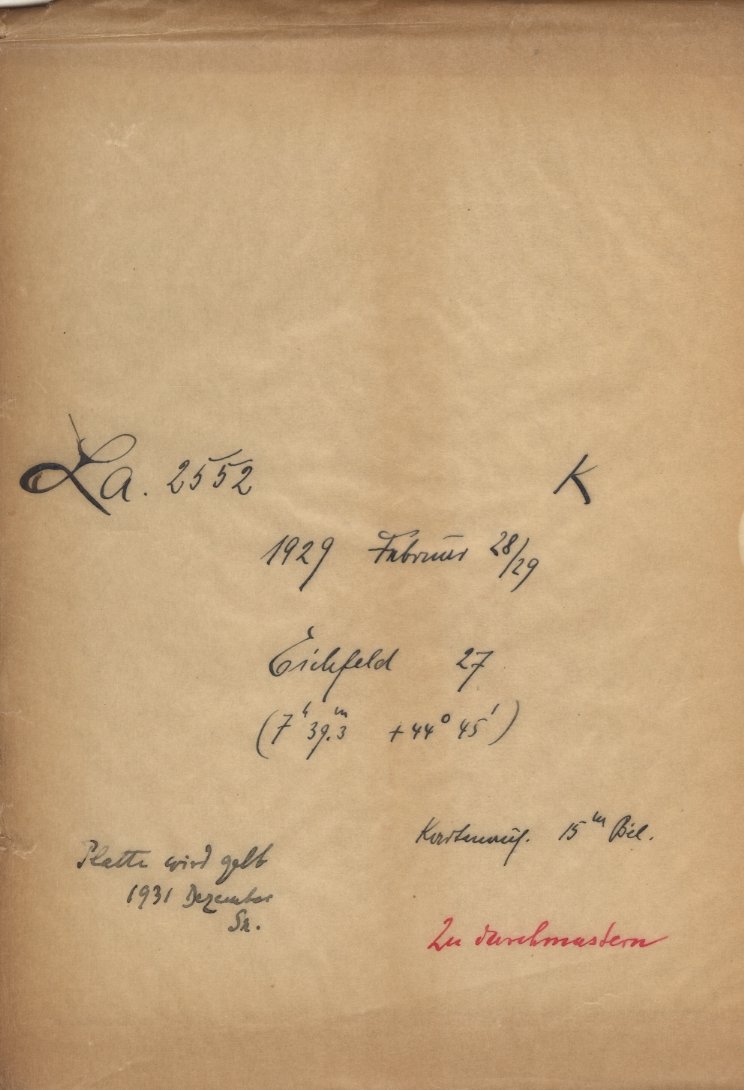 La. 2552 K
1929 Februar 28/29
Eichfeld 27
(7ʰ 39.ᵐ3 +44° 45')
Kartenauf. 15ᵐ Bel.
Platte wird gelb
1931 Dezember
Zu durchmustern